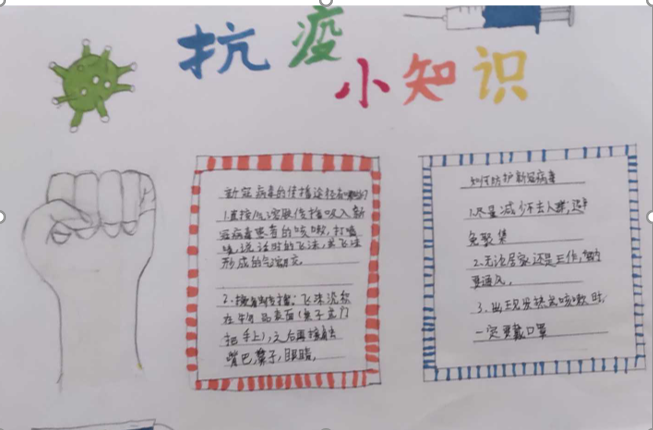 抗疫
小知识
新冠病毒的传播途径有哪些?
1.直接传播:吸入新
冠病毒患者的咳嗽,打喷
嚏,说话时的飞沫,或飞沫
形成的气溶胶
2.接触传播:飞沫沉积
在物品表面(桌子,门
把手上),之后再接触
嘴巴,鼻子,眼睛,
如何防护新冠病毒
1.尽量减少不去人群,避
免聚集
2.无论居家还是工作,都
要通风,
3.出现发热或咳嗽时,
一定要戴口罩